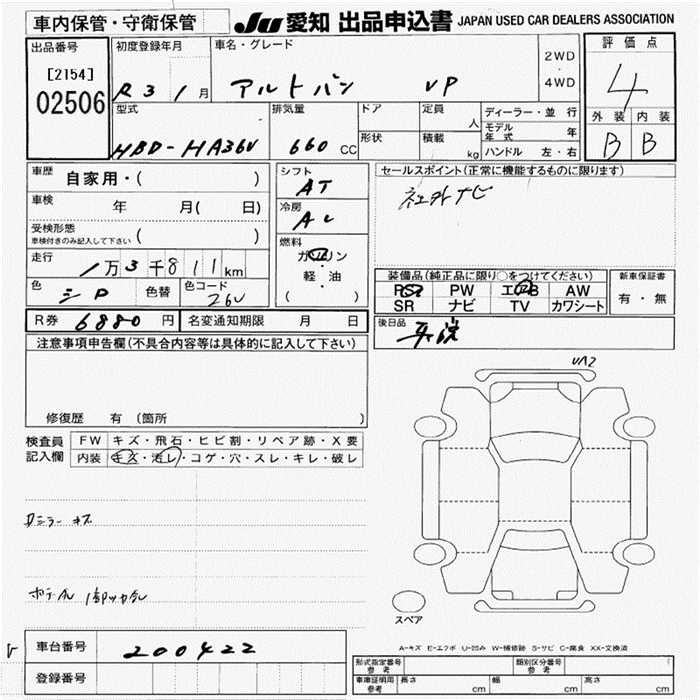 車内保管・守衛保管
JU 愛知 出品申込書 JAPAN USED CAR DEALERS ASSOCIATION
出品番号
[2154]
02506
初度登録年月
R3 1 月
車名・グレード
アルトバン VP
2WD
・
4WD
評価点
4
外装 内装
B B
型式
HBD-HA36V
排気量
660 CC
ドア
形状
定員
人
積載
kg
ディーラー・並行
モデル年式 年
ハンドル 左・右
車歴
自家用・( )
車検
年 月( 日)
受検形態
車検付きのみ記入して下さい ( )
走行
1万3千811km
色
シロ
色替
色コード
26U
シフト
AT
冷房
AC
燃料
ガソリン
・
軽・油
( )
セールスポイント(正常に機能するものに限ります)
社外ナビ
装備品(純正品に限り○をつけてください)
PS PW エアB AW
SR ナビ TV カワシート
新車保証書
有・無
R券 6880 円
名変通知期限 月 日
後日品
注意事項申告欄(不具合内容等は具体的に記入して下さい)
修復歴 有 (箇所 )
検査員
記入欄
FW キズ・飛石・ヒビ割・リペア跡・X要
内装 キズ・汚レ・コゲ・穴・スレ・キレ・破レ
UA2
Dミラーキズ
スペア
A-キズ E-エクボ U-凹み W-補修跡 S-サビ C-腐食 XX-交換済
車台番号 200422
登録番号
形式指定番号 参考
類別区分番号 参考
車庫証明用 参考
長さ cm
幅 cm
高さ cm